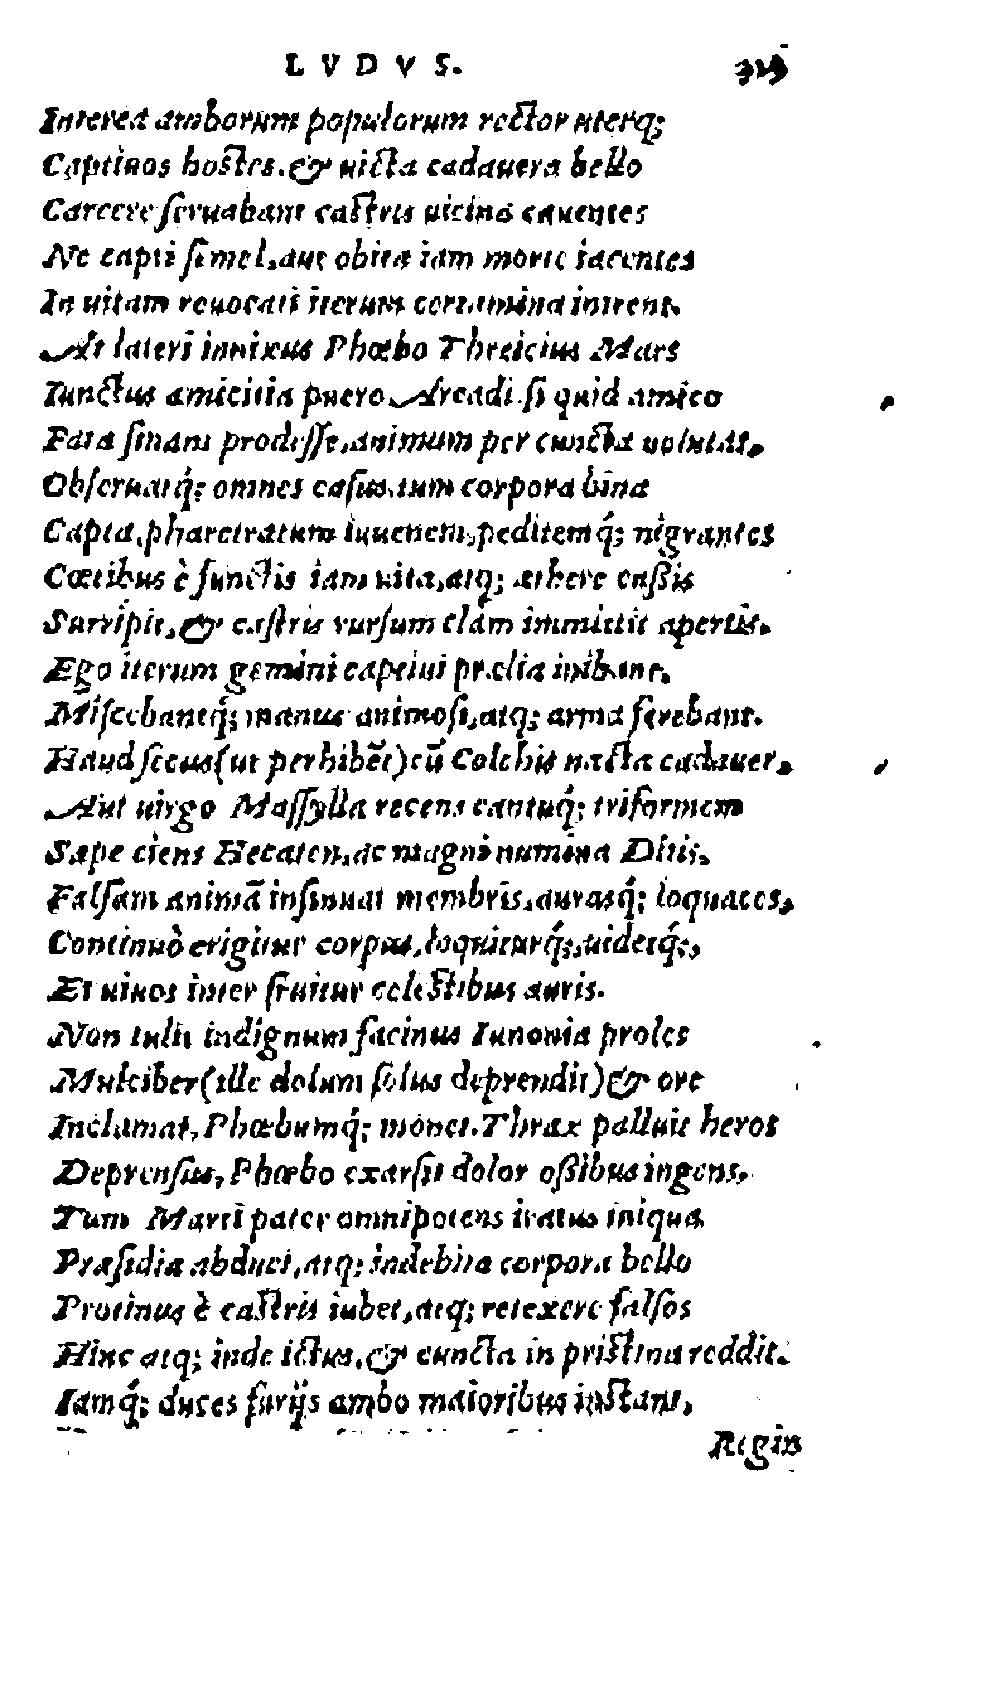 LVDVS.
Interea amborum populorum rector uterq;
Captiuos hostes, & uicta cadauera bello
Carcere seruabant castris uicina cauentes
Ne capti simel, aut obita iam morte iacentes
In uitam reuocati iterum certamina intrent.
At lateri innixus Phœbo Threicius Mars
Iunctus amicitia puero Arcadi, si quid amico
Fata sinant prodesse, animum per cuncta uolutat,
Obseruatq́; omnes casus, tum corpora bina
Capta, pharetratum iuuenem, peditemq́; nigrantes
Cœtibus è functis iam uita, atq; æthere cassis
Surripit, & castris rursum clàm immittit apertis.
Ergo iterum gemini captiui prælia inibant,
Miscebantq́; manus animosi, atq; arma ferebant.
Haud secus (ut perhibēt) cū Colchis nacta cadauer,
Aut uirgo Massylla recens cantuq́; triformem
Sæpe ciens Hecaten, ac magni numina Ditis,
Falsam animā insinuat membris, aurasq́; loquaces,
Continuò erigitur corpus, loquiturq́;, uidetq́;,
Et uiuos inter fruitur cœlestibus auris.
Non tulit indignum facinus Iunonia proles
Mulciber (ille dolum solus deprendit) & ore
Inclamat, Phœbumq́; monet. Thrax palluit heros
Deprensus, Phœbo exarsit dolor ossibus ingens,
Tum Marti pater omnipotens iratus iniqua
Præsidia abduci, atq; indebita corpora bello
Protinus è castris iubet, atq; retexere falsos
Hinc atq; inde ictus, & cuncta in pristina reddit.
Iamq́; duces furijs ambo maioribus instant,
Regin